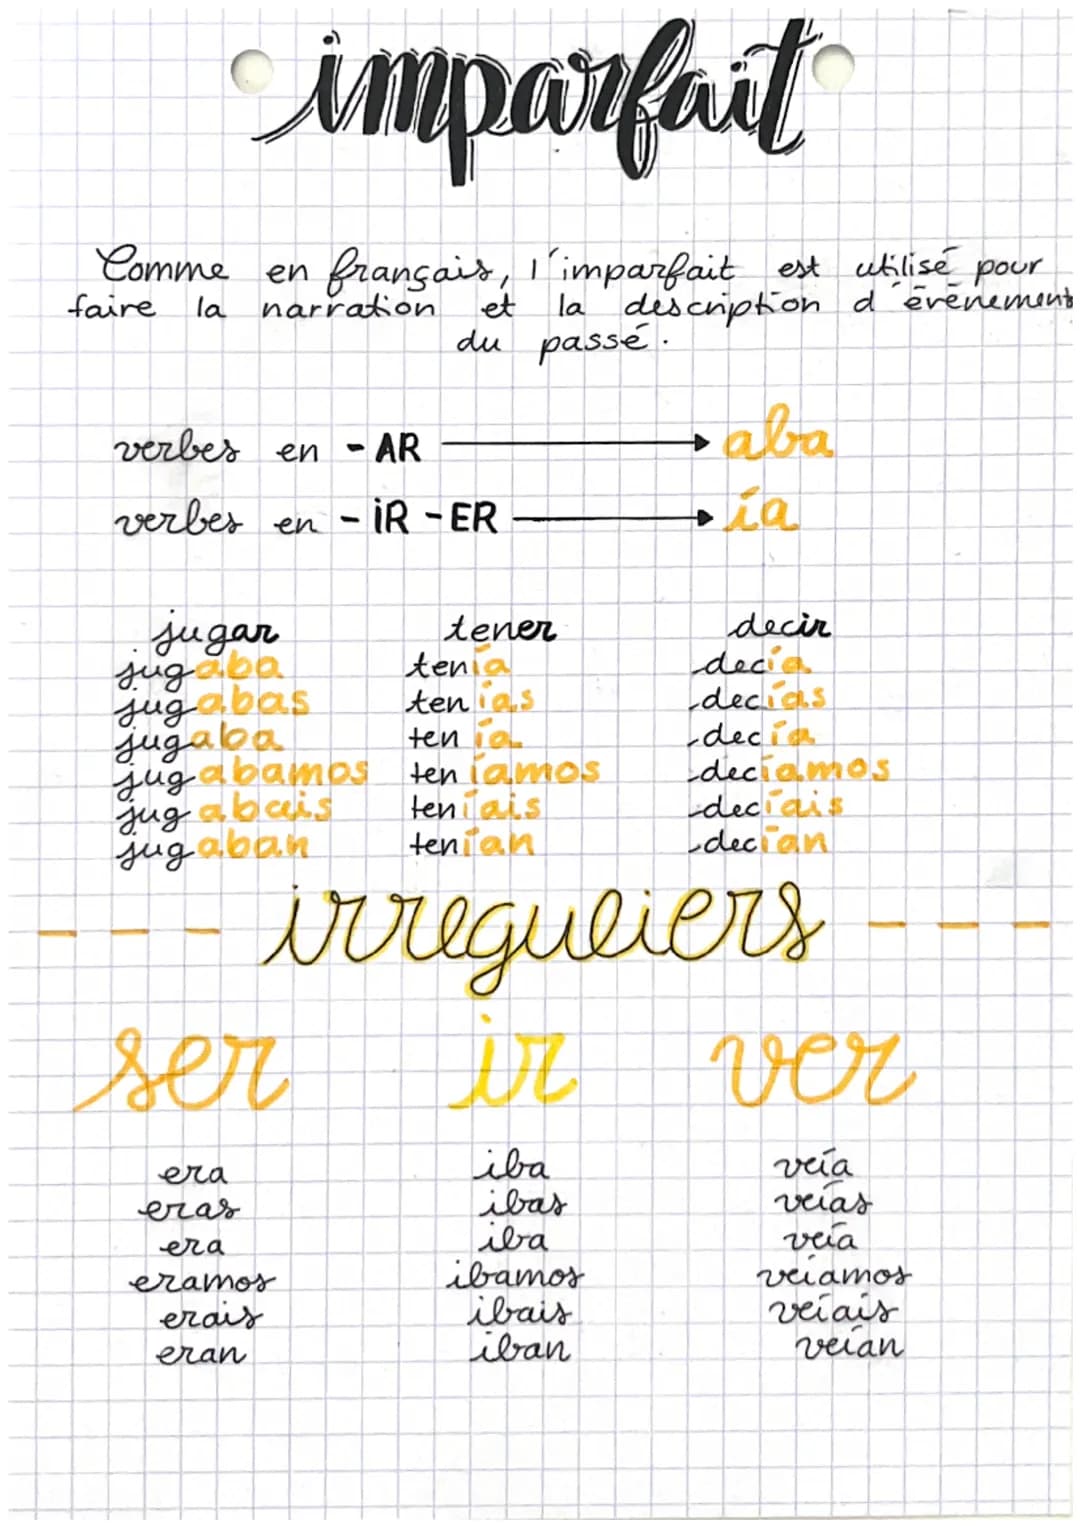 imparfait
Comme en français, l'imparfait est utilisé pour
faire la narration et la description d'événement
du passé.
verbes en - AR → aba
verbes en - iR - ER → ía
jugar tener decir
jugaba tenía decía
jugabas tenías decías
jugaba tenía decía
jugabamos teníamos decíamos
jugabais teníais decíais
jugaban tenían decían
irreguliers
ser ir ver
era iba veía
eras ibas veías
era iba veía
eramos ibamos veíamos
erais ibais veíais
eran iban veían